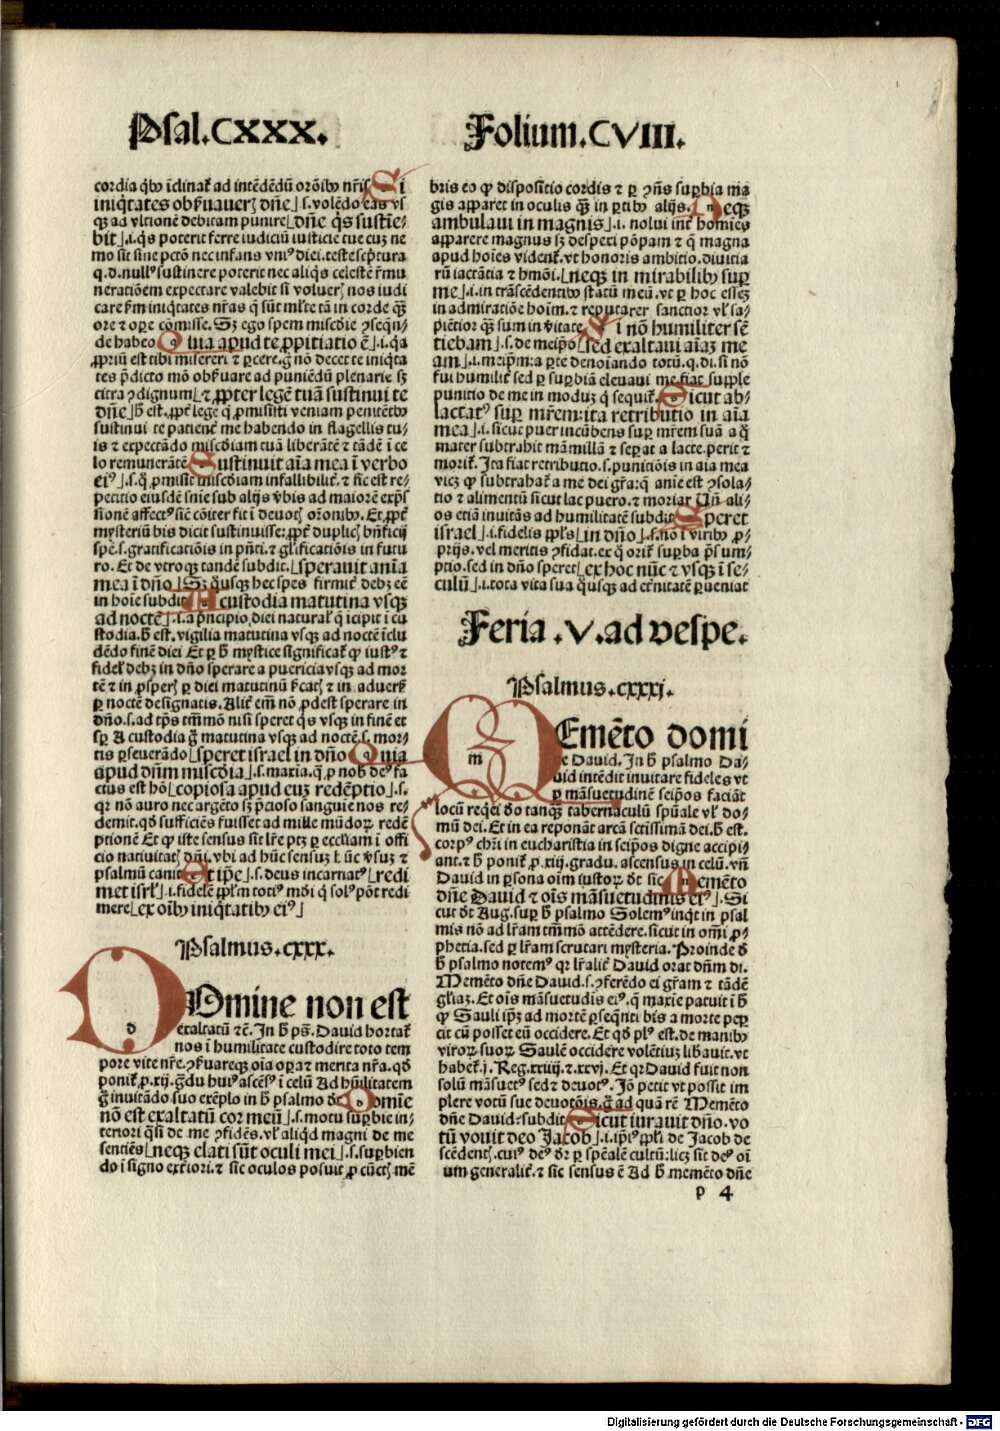 Psal.CXXX.
Folium.CVIII.
cordia q̇bꝰ īclinaṫ ad intēdēdū orōibꝰ nr̄is Si
iniq̇tates obẜuauerꝭ dn̄e⌋.s.volēdo eas vſ
qꝫ ad vltionē debitam punire⌊dn̄e q̇s ſuſtie⸗
bit⌋.i.q̇s poterit ferre iudiciū iuſticie tue cuꝫ ne
mo ſit ſine pctō nec infans vniꝰ diei.teſte ſcp̄tura
q.d.nullꝰ ſuſtinere poterit nec aliq̇s celeſtē r̄mu
neratiōem expectare valebit ſi volueꝝ nos iudi
care ẜm iniq̇tates nr̄as q̄ ſūt ml̄te tā in corde qꝫ
ore ⁊ oꝑe cōmiſſe.Sꝫ ego ſpem miſcd̄ie ꝯſeq̄n⸗
de habeo Quia apud te ꝓpitiatio ē⌋.i.q̇a
ꝓpriū eſt tibi miſereri ⁊ ꝑcere.g̊ nō decet te iniq̇ta
tes p̄dicto mō obẜuare ad puniēdū plenarie ſꝫ
citra ꝯdignum⌊⁊ ꝓpter legē tuā ſuſtinui te
dn̄e⌋h̄ eſt.ꝓpt̄ legē q̄ ꝓmiſiſti veniam penitētibꝰ
ſuſtinui te patient̄ me habendo in flagellis tu⸗
is ⁊ expectādo miſcd̄iam tuā liberātē ⁊ tādē ī ce
lo remunerātē Suſtinuit aīa mea ī verbo
eiꝰ⌋.s.q̄ ꝓmiſit miſcd̄iam infallibilit̄.⁊ ſic eſt re⸗
petitio eiuſdē ſnīe ſub alijs v̄bis ad maiorē exp̄ſ
ſionē affectꝰ ſic cōiter fit ī deuotꝭ or̄onibꝰ.Et ꝓpt̄
myſteriū bis dicit ſuſtinuiſſe:ꝓpt̄ duplicꝭ bn̄ficij
ſpē.s.gratificatiōis in pn̄ti.⁊ gl̄ificatiōis in futu
ro.Et de vtroqꝫ tandē ſubdit.⌊ſperauit anīa
mea ī dn̄o⌋Sꝫ q̇uſqꝫ hec ſpes firmit̄ debꝫ eē
in hoīe ſubdit A cuſtodia matutina vſqꝫ
ad noctē⌋.i.a pn̄cipio diei natural̄ q̇ icipit ī cu
ſtodia.h̄ eſt.vigilia matutina vſqꝫ ad noctē īclu
dēdo finē diei Et ꝑ h̄ myſtice ſignificaṫ ꝙ iuſtꝰ ⁊
fidel̄ debꝫ in dn̄o ſperare a puericia vſqꝫ ad mor
tē ⁊ in ꝓſperꝭ ꝑ diei matutinū ẜcatꝭ ⁊ in aduerẜ
ꝑ noctē deſignatis.Alit̄ em̄ nō ꝓdeſt ſperare in
dn̄o.s.ad tp̄s tm̄mō niſi ſperet q̇s vſqꝫ in finē et
ſꝑ A cuſtodia g̊ matutina vſqꝫ ad noctē.s.mor⸗
tis ꝑſeuerādo⌊ſperet iſrael in dn̄o Quia
apud dn̄m miſcd̄ia⌋.s.maxīa.q̄ ꝓ nob̄ deꝰ fa
ctus eſt hō⌊copioſa apud euꝫ redēptio⌋.s.
qr nō auro nec argēto ſꝫ p̄cioſo ſanguīe nos re⸗
demit.qd̄ ſufficiēs fuiſſet ad mille mūdoꝝ redē
ptionē Et ꝙ iſte ſenſus ſit lr̄e ptꝫ ꝑ eccliam ī offi
cio natiuitatꝭ dn̄i.vbi ad hūc ſenſuꝫ l̄ ūc v̄ſuꝫ ⁊
pſalmū canit Et ip̄e⌋.s.deus incarnatꝰ⌊redi
met iſrl̄⌋.i.fidelē ꝓpl̄m totiꝰ mūdi q̇ ſolꝰ pōt redi
mere⌊ex oībꝰ iniq̇tatibꝰ eiꝰ⌋
Psalmus.cxxx.
DOmine non eſt
exaltatū ⁊c̄.In h̄ pſ.Dauid hortaṫ
nos ī humilitate cuſtodire toto tem
pore vite nr̄e.ꝯẜuareqꝫ oīa oꝑa ⁊ merita nr̄a.qd̄
poniṫ ꝓ.xij.g̊du huiꝰ aſcēſꝰ ī celū Ad hūilitatem
g̊ inuitādo ſuo exēplo in h̄ pſalmo dt Domīe
nō eſt exaltatū cor meū⌋.s.motu ſuꝑbie in⸗
teriori q̇ſi de me ꝯfidēs.vl̄ aliq̇d magni de me
ſentiēs⌊neqꝫ elati ſūt oculi mei⌋.s.ſuꝑbien
do ī ſigno exteriori.⁊ ſic oculos poſuit ꝓ cūctꝭ mē
bris eo ꝙ diſpoſitio cordis ⁊ ꝑ ꝯn̄s ſuꝑbia ma
gis apparet in oculis qꝫ in ꝑtibꝰ alijs. Neqꝫ
ambulaui in magnis⌋.i.nolui int̄ homīes
apparere magnus ſꝫ deſpexi pōpam ⁊ q̄ magna
apud hoīes videnṫ.vt honoris ambitio.diuitia
rū iactātia ⁊ hmōi.⌊neqꝫ in mirabilibꝰ ſuꝑ
me⌋.i.in trāſcēdentibꝰ ſtatū meū.vt ꝑ hoc eſſeꝫ
in admiratiōe hoīm.⁊ reputarer ſanctior vl̄ ſa⸗
piētior qꝫ ſum in v̄itate Si nō humiliter ſē
tiebam⌋.s.de meip̄o⌊ſed exaltaui aīaꝫ me
am⌋.i.meip̄m:a ꝑte denoīando totū.q.di.ſi nō
fui humilit̄ ſed ꝑ ſuꝑbiā eleuaui me.fiat ſupple
punitio de me in moduꝫ q̇ ſequiṫ. Sicut ab⸗
lactatꝰ ſuꝑ mr̄em:ita retributio in aīa
mea⌋.i.ſicut puer incūbens ſuꝑ mr̄em ſuā a q̄
mater ſubtrahit māmillā ⁊ ſeꝑat a lacte.perit ⁊
moriṫ.Ita fiat retributio.s.punitiōis in aīa mea
vicꝫ ꝙ ſubtrahaṫ a me dei gr̄a:q̄ anīe eſt ꝯſola⸗
tio ⁊ alimentū ſicut lac puero.⁊ moriar Vn̄ ali⸗
os etiā inuitās ad humilitatē ſubdit Speret
iſrael⌋.i.fidelis ꝓpl̄s⌊in dn̄o⌋.ſ.nō ī viribꝰ ꝓ⸗
prijs.vel meritis ꝯfidat.ex q̇ oriṫ ſuꝑba p̄ſum⸗
ptio.ſed in dn̄o ſperet⌊ex hoc nūc ⁊ vſqꝫ ī ſe⸗
culū⌋.i.tota vita ſua q̇uſqꝫ ad et̄nitatē ꝑueniat
Feria .V.ad veſpe.
Psalmus.cxxxj.
MEmēto domi
ne Dauid.In h̄ pſalmo Da⸗
uid intēdit inuitare fideles vt
ꝑ māſuetudinē ſeip̄os faciāt
locū req̇ei do tanqꝫ tabernaculū ſpūale vl̄ do⸗
mū dei.Et in ea reponāt arcā ſctiſſimā dei.h̄ eſt.
corpꝰ chr̄i in euchariſtia in ſeip̄os digne accipi⸗
ant.⁊ h̄ poniṫ ꝓ.xiij.gradu.aſcenſus in celū.vn̄
Dauid in ꝑſona oīm iuſtoꝝ dt ſic Memēto
dn̄e Dauid ⁊ oīs māſuetudinis eiꝰ⌋.Si
cut dt Aug.ſuꝑ h̄ pſalmo Solemꝰ inq̇t in pſal
mis nō ad lr̄am tm̄mō attēdere.ſicut in om̄i ꝓ⸗
phetia.ſed ꝑ lr̄am ſcrutari myſteria.Proinde d̄
h̄ pſalmo notemꝰ qr lr̄alit̄ Dauid orat dn̄m di.
Memēto dn̄e Dauid.s.ꝯferēdo ei gr̄am ⁊ tādē
gl̄iaꝫ.Et oīs māſuetudīs eiꝰ.q̄ maxīe patuit ī h̄
ꝙ Sauli ip̄ꝫ ad mortē ꝑſeq̄nti bis a morte peꝑ
cit cū poſſet eū occidere.Et qd̄ plꝰ eſt.de manibꝰ
viroꝝ ſuoꝝ Saulē occidere volētiuꝫ lib̄auit.vt
habeṫ.j.Reg.xxiiij.⁊.xxvj.Et qr Dauid fuit non
ſolū māſuetꝰ ſed ⁊ deuotꝰ.Iō petit vt poſſit im
plere votū ſue deuotōis.g̊ ad quā rē Memēto
dn̄e Dauid:ſubdit Sicut iurauit dn̄o.vo
tū vouit deo Jacob⌋.i.ip̄iꝰ ꝓpl̄i de Jacob de
ſcēdentꝭ.cuiꝰ deꝰ dr ꝑ ſpēalē cultū:licꝫ ſit deꝰ oī
um generalit̄.⁊ ſic ſenſus ē Ad h̄ memēto dn̄e
p 4
Digitalisierung gefördert durch die Deutsche Forschungsgemeinschaft - DFG